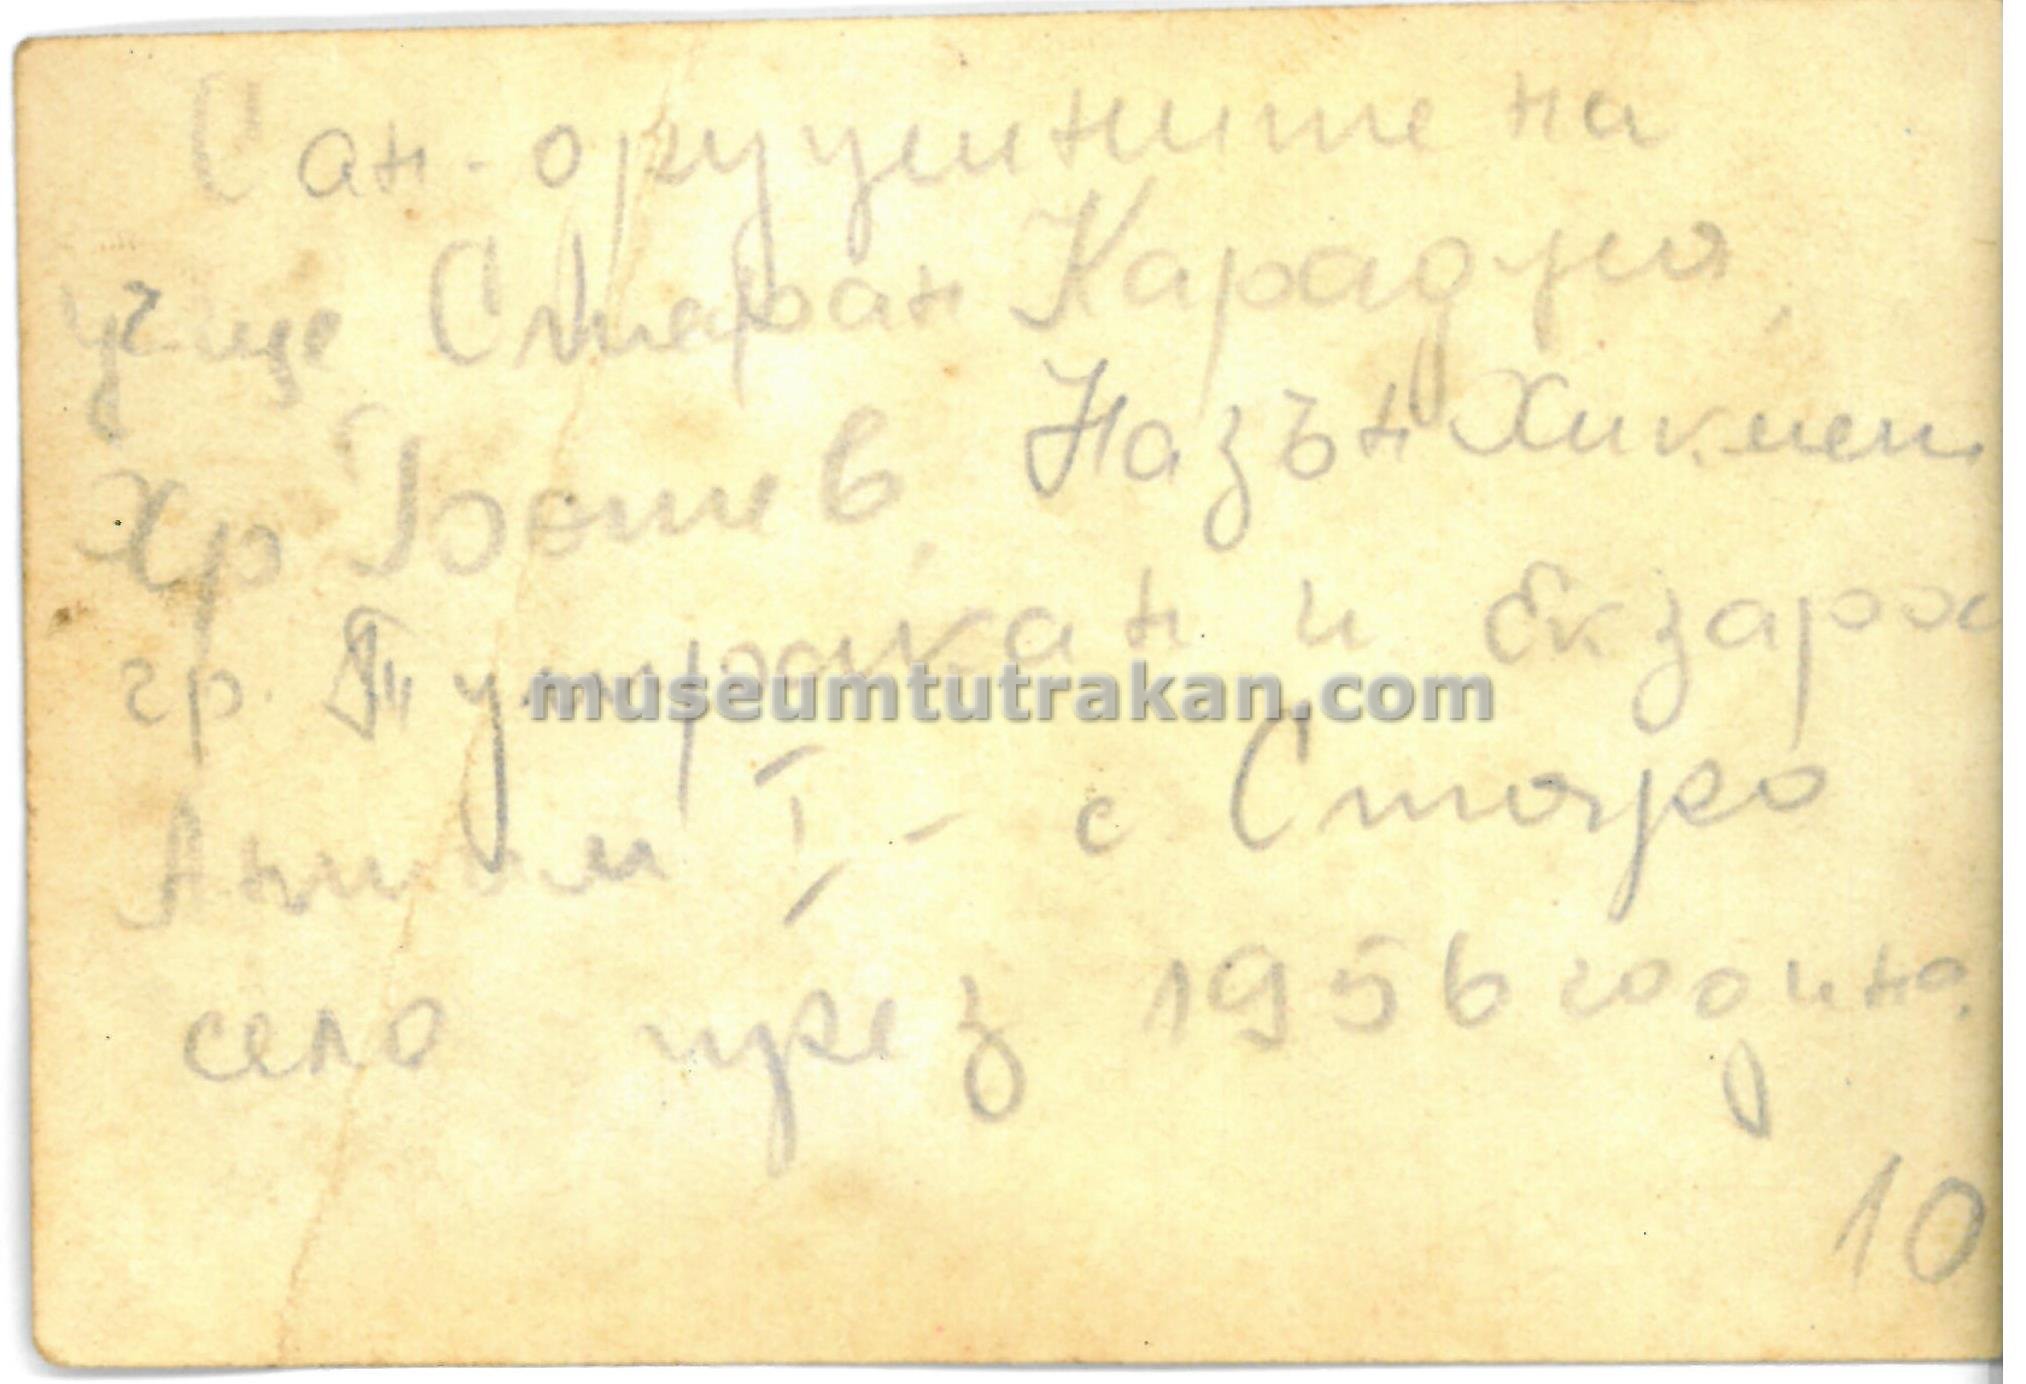 Сан-дружините на
уч-ще Стефан Караджа,
Хр Ботев, Назъм Хикмет
гр. Тутракан и Екзарх
museumtutrakan.com
Антим I - с Старо
село през 1956 година.
10